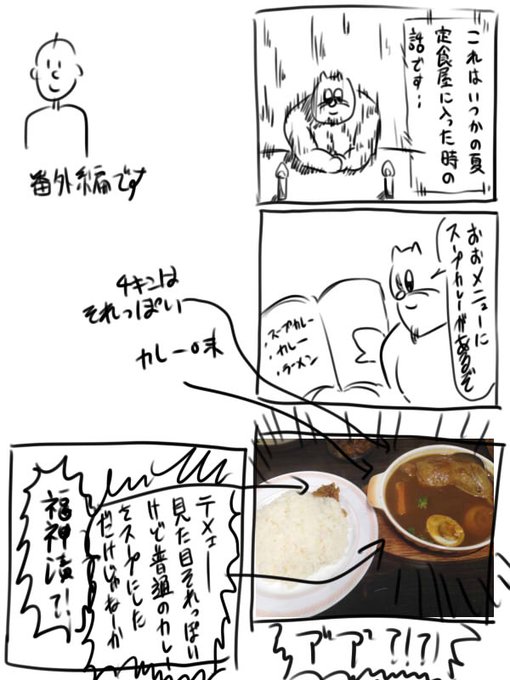 これはいつかの夏
定食屋に入った時の
話です…
番外編です
おおメニューに
スープカレーがあるぞ
・スープカレー
・カレー
・ラーメン
チキンは
それっぽい
カレー味
デデ?!?!
テメェー
見た目それっぽい
けど普通のカレー
をスープにした
だけじゃねーか
福神漬て!